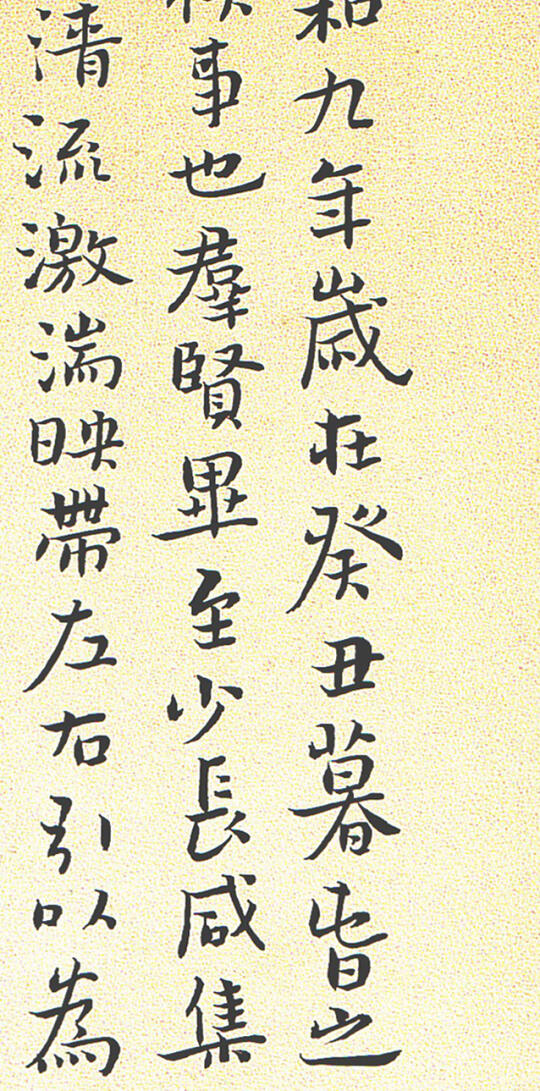 和九年歲在癸丑暮春之
禊事也羣賢畢至少長咸集
清流激湍映帶左右引以為